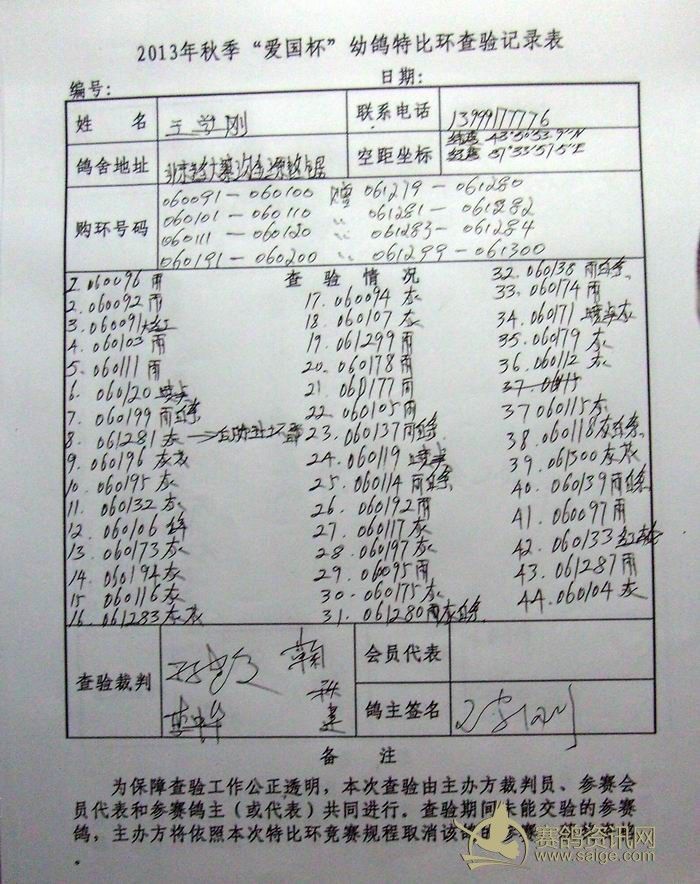 2013年秋季“爱国杯”幼鸽特比环查验记录表
编号： 日期：
姓 名 王 刚 联系电话 13999177776
鸽舍地址 空距坐标 43°50′53.9″N
87°33′57.5″E
购环号码 060091—060100 赠 061279—061280
060101—060110 〃 061281—061282
060111—060120 〃 061283—061284
060191—060200 〃 061299—061300
查验情况
1. 060096 雨
2. 060092 雨
3. 060091
4. 060103 雨
5. 060111 雨
6. 060120
7. 060199 雨白条
8. 061281 灰
9. 060196 灰花
10. 060195 灰
11. 060132 灰
12. 060106
13. 060173 灰
14. 060194 灰
15. 060116 灰
16. 061283 灰花
17. 060094 灰
18. 060107 灰
19. 061299 雨
20. 060178 雨
21. 060177 雨
22. 060105 雨
23. 060137 雨白条
24. 060119
25. 060114 雨白条
26. 060192 雨
27. 060117 灰
28. 060197 灰
29. 060095 雨
30. 060175 灰
31. 061280 雨灰白条
32. 060138 雨白条
33. 060174 雨
34. 060171
35. 060179 灰
36. 060112 灰
37 060115 灰
38. 060118 灰白条
39. 061300 灰花
40. 060139 雨白条
41. 060097 雨
42. 060133
43. 061287 雨
44. 060104 灰
查验裁判 会员代表
鸽主签名
备 注
为保障查验工作公正透明，本次查验由主办方裁判员、参赛会
员代表和参赛鸽主（或代表）共同进行。查验期间未能交验的参赛
鸽，主办方将依照本次特比环竞赛规程取消该
赛鸽资讯网
www.saige.com